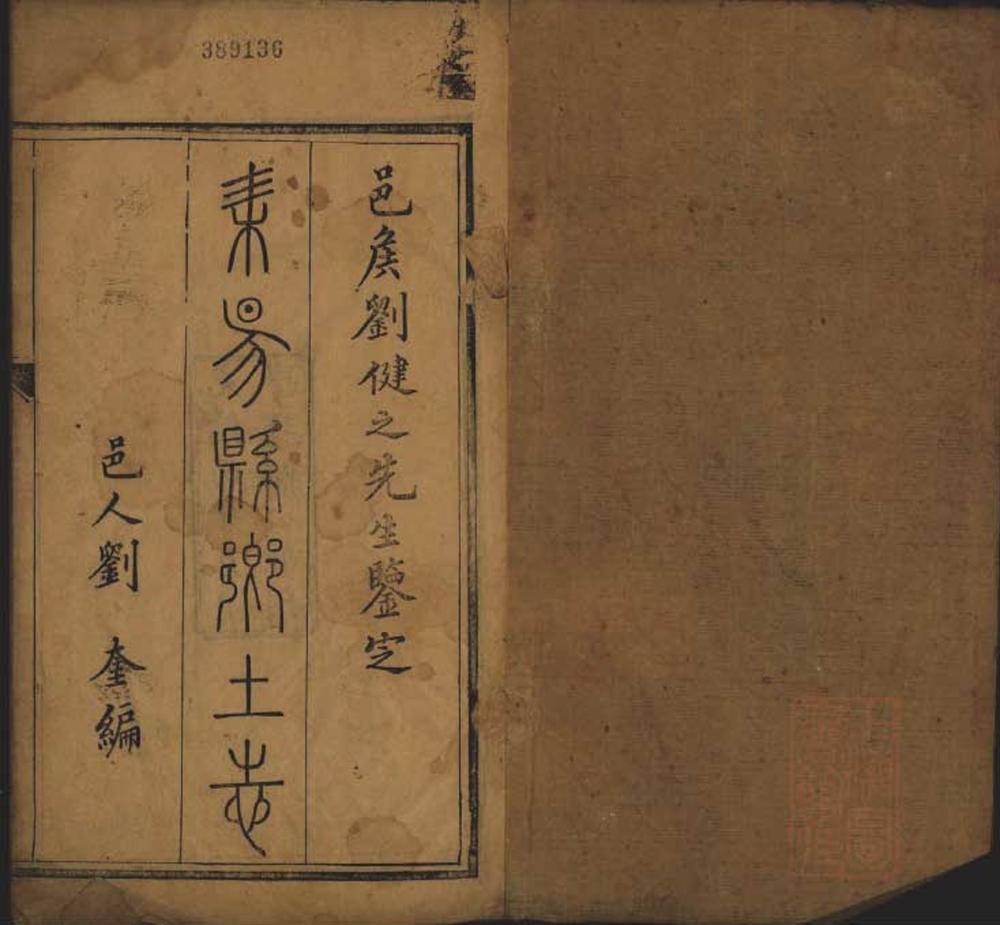 389136
邑矦劉健之先生鑒定
耒昜縣鄉土志
邑人劉 奎編